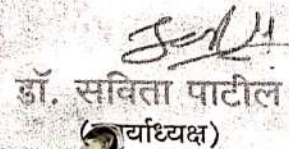 डॉ. सविता पाटील
(र्याध्यक्ष)